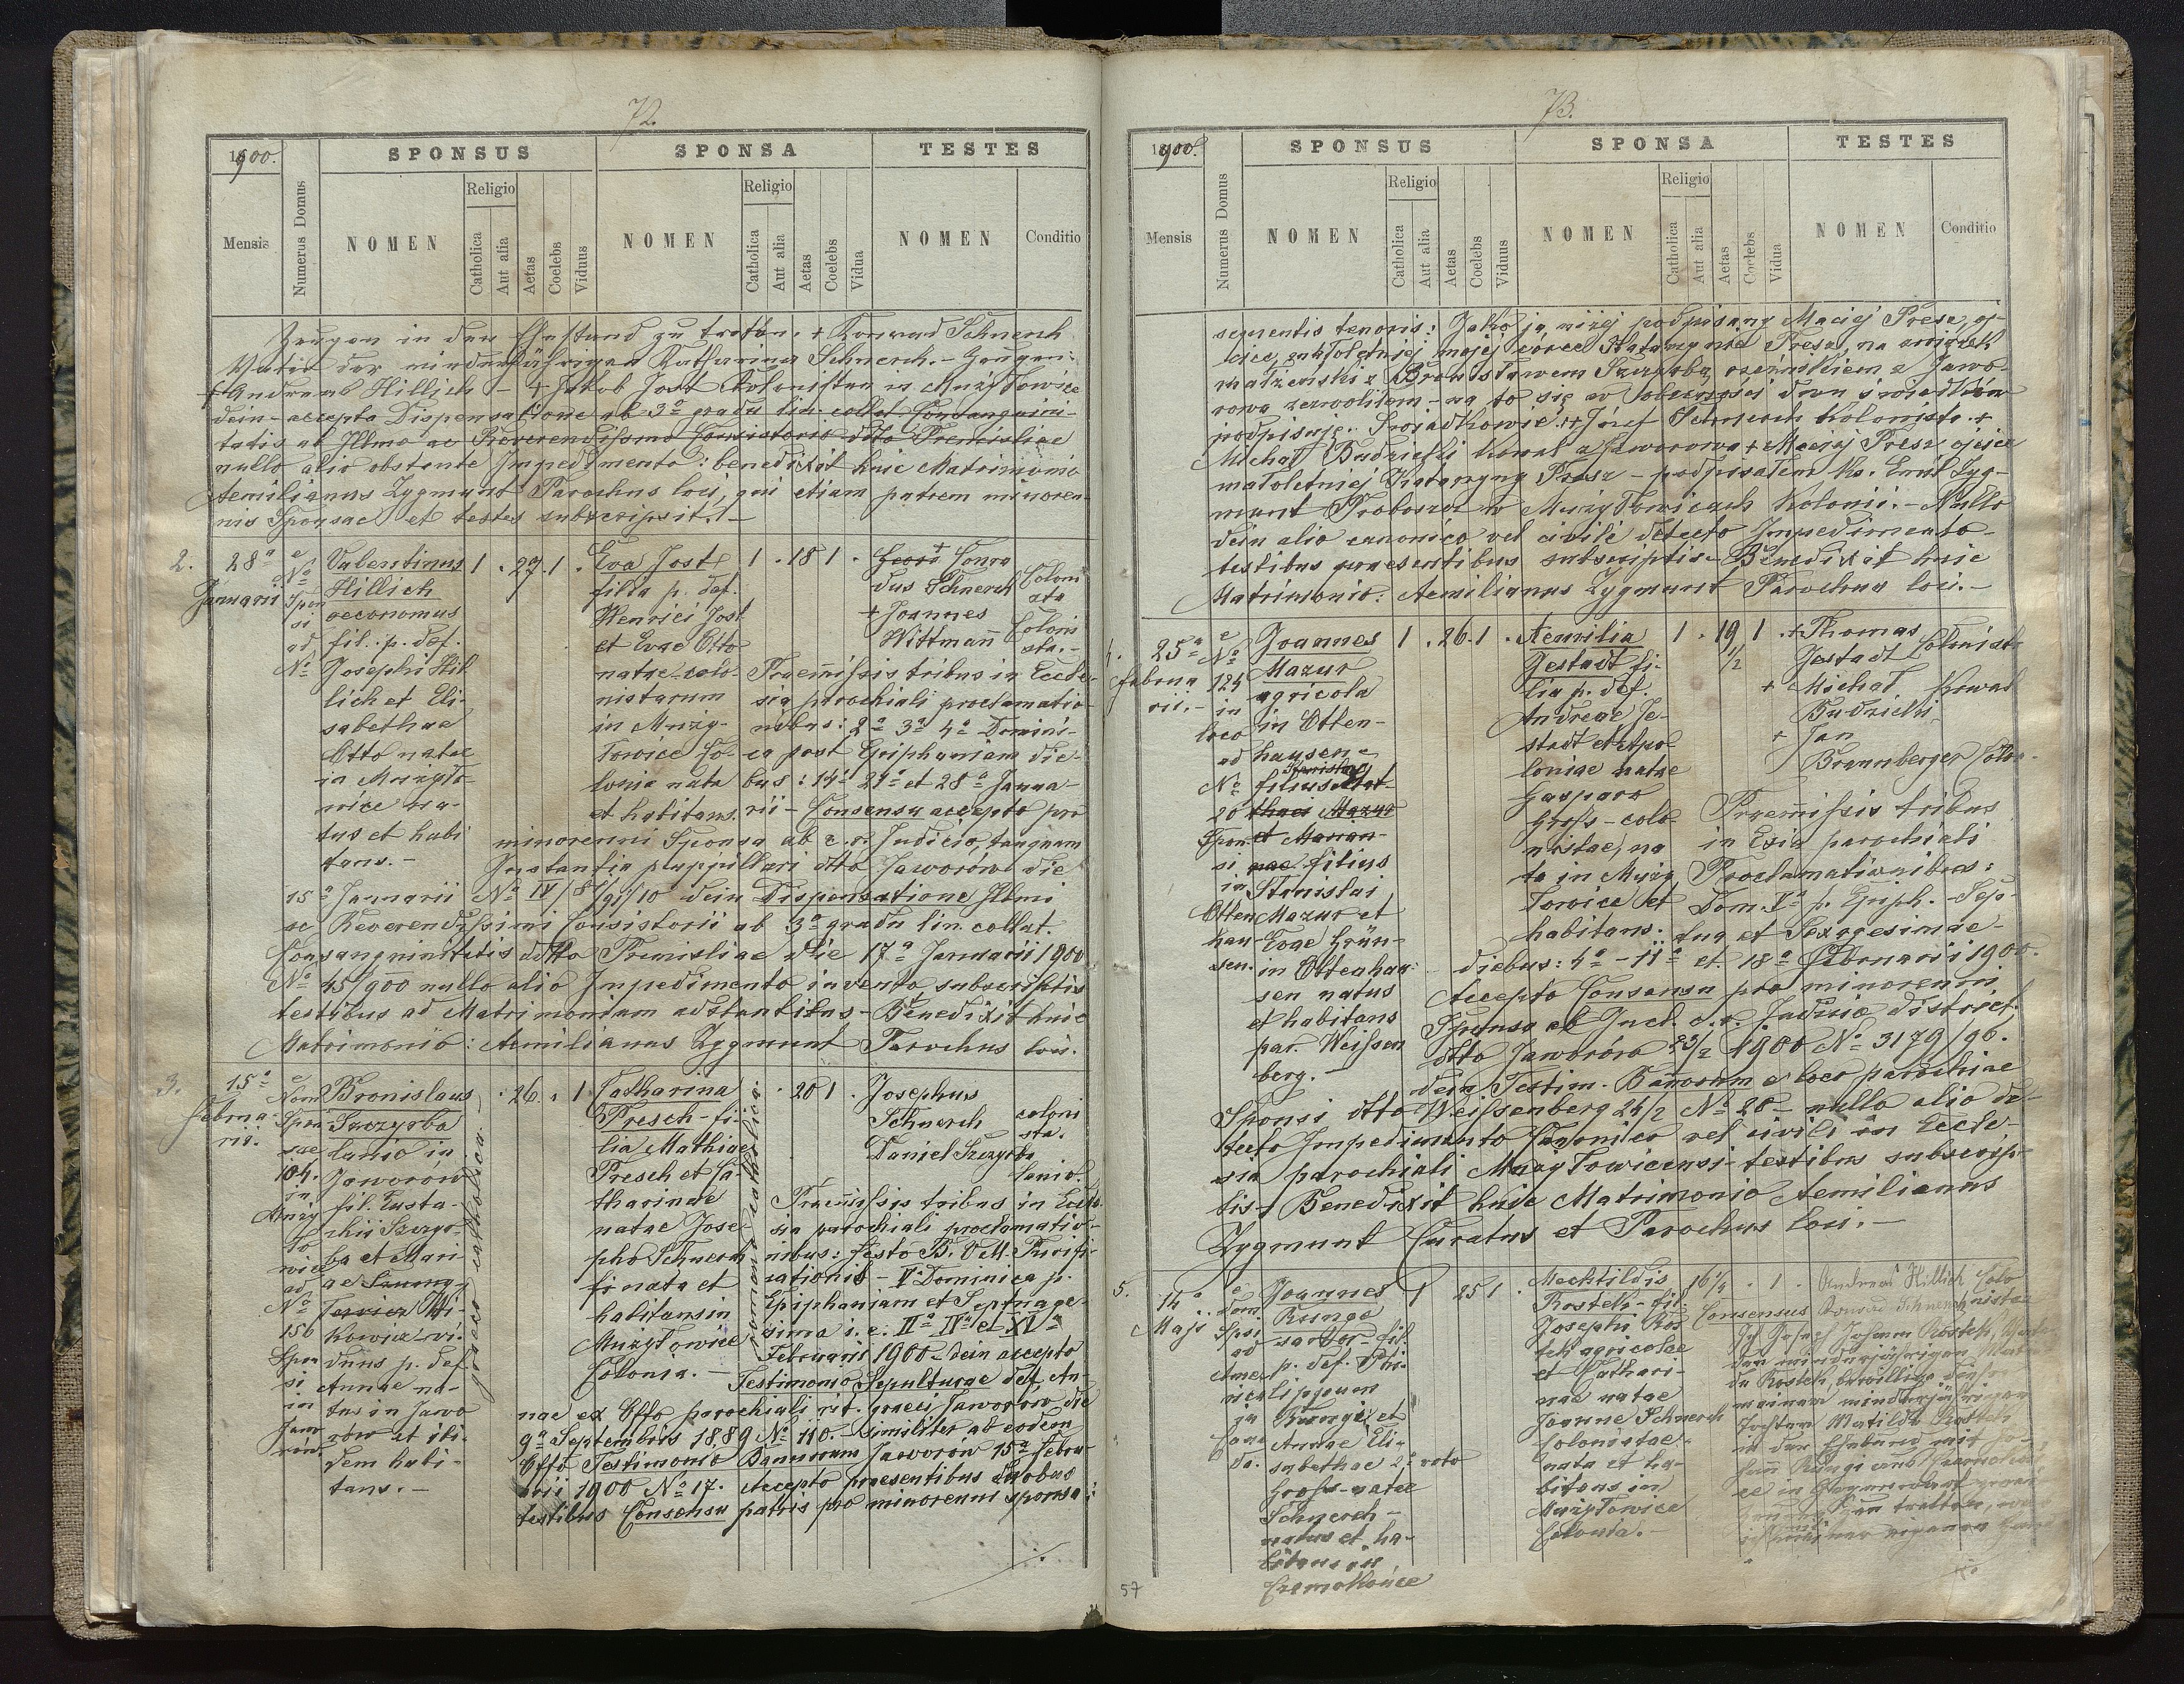 72.
1900.
SPONSUS
SPONSA
TESTES
Mensis
Numerus Domus
NOMEN
Religio
Catholica
Aut alia
Aetas
Coelebs
Viduus
NOMEN
Religio
Catholica
Aut alia
Aetas
Coelebs
Vidua
NOMEN
Conditio
Zeugen in den Ehestand zu treten. + Konrad Schnerch
Vater der minderjährigen Katharina Schnerch. – Zeugen:
+ Andreas Hillich – + Jakob Jost Kolonisten in Mużyłowice
dein accepta Dispensatione ab 3º gradu lin. collat. Consanguini-
tatis ab Illmo ac Reverendissmo Consistorio dtto Premisliae
nullo alio obstante Impedimento: benedixit huic Matrimonio
Aemilianus Zygmunt Parochus loci, qui etiam patrem minoren-
nis Sponsae et testes subscripsit. –
2.
28ª
Januarii
e
Nº
Spon
si
ad
Nº
Valentinus
Hillich
oeconomus
fil. p. def.
Josephi Hil
lich et Eli-
sabethae
Otto natae
in Mużyło-
wice na-
tus et habi
tans. –
1 . 27 . 1 .
Eva Jost
filia p. def.
Henrici Jost
et Evae Otto
natae colo-
nistarum
in Muży-
łowice Co-
lonia nata
et habitans.
1 . 18 1 .
+
Conra
dus Schnerch
Coloni
sta
+ Joannes
Wittmann
Colonis
sta. –
Praemissis tribus in Eccle-
sia parochiali proclamatio-
nibus: 2ª 3ª 4ª Domini-
ca post Epiphaniam die-
bus: 14ª 21ª et 28ª Janua-
rii – Consensu accepto pro
minorenni Sponsa ab c. r. Judicio, tanquam
Instantia pupillari dtto Jaworów die
15ª Januarii Nº IV/8 /95/10 dein Dispensatione Illmi
ac Reverendissimi Consistorii ab 3º gradu lin. collat.
Consanguinitatis ddtto Premisliae die 17ª Januarii 1900
Nº 45/900 nullo alio Impedimento invento subscriptis
testibus ad Matrimonium adstantibus – Benedixit huic
Matrimonio: Aemilianus Zygmunt Parochus loci.
3.
15ª
Februa-
rii.
e
Dom
Spon
sae
104.
in
Muży
ło
wice
ad
Nº
156
Spon
si
in
Jawo
rów
Bronislaus
Szczyrba
lanio in
Jaworów
fil. Eusta-
chii Szczyr-
ba et Mari
ae
kowicz vi-
duus p. def.
Annae na-
tus in Jawo
row et ibi-
dem habi-
tans. –
graeco catholica. –
. 26. . 1
Catharina
Presch – fi-
lia Mathiae
Presch et Ca-
tharinae
natae Jose-
pho Schnerch
nata et
habitans in
Mużyłowice
Colonia. –
romano catholica
. 20 1 .
Josephus
Schnerch
coloni
sta.
Daniel Szczyrba
lanio.
Praemissis tribus in Eccle-
sia parochiali proclamatio-
nibus: festo B. V. M. Purifi-
cationis – V. Dominica p.
Epiphaniam et Septuage-
sima i. e. IIª IVª et XIª
Februarii 1900 – dein accepto
Testimonio Sepulturae def. An-
nae ex Offo parochiali rit. graeci Jaworów die
9ª Septembris 1889 Nº 110. – similiter ab eodem
Offo Testimonio Bannorum Jaworów 15ª Febru-
arii 1900 Nº 17. Accepto praesentibus duobus
testibus Consensu patris pro minorenni sponsa:
73.
1900.
SPONSUS
SPONSA
TESTES
Mensis
Numerus Domus
NOMEN
Religio
Catholica
Aut alia
Aetas
Coelebs
Viduus
NOMEN
Religio
Catholica
Aut alia
Aetas
Coelebs
Vidua
NOMEN
Conditio
sequentis tenoris: Jako ja, niżej podpisany Maciej Presz, oj-
ciec, małoletniej mojej córce Katarzynie Presz, na związek
małżeński z Bronisławem Szczyrbą rzeźnikiem z Jawo-
rowa zezwoliłem – na to się w obecności dwu świadków
podpisuję. Świadkowie: + Józef Schnerch kolonista. +
Michał Budzicki kowal z Jaworowa + Maciej Presz ojciec
małoletniej Katarzyny Presz – podpisałem Ks. Emil Zyg-
munt Proboszcz w Mużyłowicach Kolonii. – Nullo
dein alio canonico vel civili detecto Impedimento –
testibus praesentibus subscriptis – Benedixit huic
Matrimonio: Aemilianus Zygmunt Parochus loci. –
4.
25ª
Februa
rii. –
e
Nº
124
in
loco
ad
Nº
20
Spon-
si
in
Otten
hau-
sen.
Joannes
Mazur
agricola
in Otten-
hausen
filius
Mazur
et Marian-
nae filius
Stanislai
Mazur et
Evae Grün-
in Ottenhau-
sen natus
et habitans
par. Weissen
berg. –
1 . 26 . 1 .
Aemilia
Jestadt fi-
lia p. def.
Andreae Je-
stadt et Apo-
loniae natae
Gasparo
Gross – colo-
nistae, na
ta in Muży
łowice et
habitans.
1 . 19 1/2 1 .
+ Thomas
Jestadt
Colonista
+ Michał
Budzicki
Kowal
+ Jan
Braunberger
Colon.
Praemissis tribus
in Eccia parochiali
Proclamationibus:
Dom. Vª p. Epiph. – Sep-
tua et Sexagesimae –
diebus: 4ª – 11ª et 18ª Februarii 1900.
Accepto Consensu pro minorenni
Sponsa ab Incl. c. r. Judicio district.
dtto Jaworów 23/2 1900 Nº 3179/96.
dein Testim. Bannorum e loco parochiae
Sponsi dtto Weissenberg 24/2 Nº 28 – nullo alio de-
tecto Impedimento Canonico vel civili in Eccle-
sia parochiali Mużyłowicensi – testibus subscrip-
tis – Benedixit huic Matrimonio Aemilianus
Zygmunt Curatus et Parochus loci. –
5.
14ª
Maji
e
dom
Spsi
ad
Ame
rica
in
Cana
da.
Joannes
Runge
fil.
p. def. Phi-
lippum
Rungi et
Annae Eli-
sabethae 2º voto
Gross – natae
Schnerch –
natus et ha-
bitans in
Czarnokońce
1 25 1 .
Mechtildis
Rosteck – fil.
Josephi Ros
tek agricolae
et Cathari-
nae natae
Joanne Schnerch
Colonistae –
nata et ha-
bitans in
Mużyłowice
Colonia. –
16 1/4 . 1 .
Andreas Hillich
Konrad Schnerch
Colo
nistae
Consensus
Ich Johann Rosteck, Vater
der minderjährigen
Rosteck, bewillige
meiner minderjährigen
Tochter Matilde Rosteck
in den Ehebund mit Jo-
hann Rungi
in Gegenwart zweier
Zeugen
57